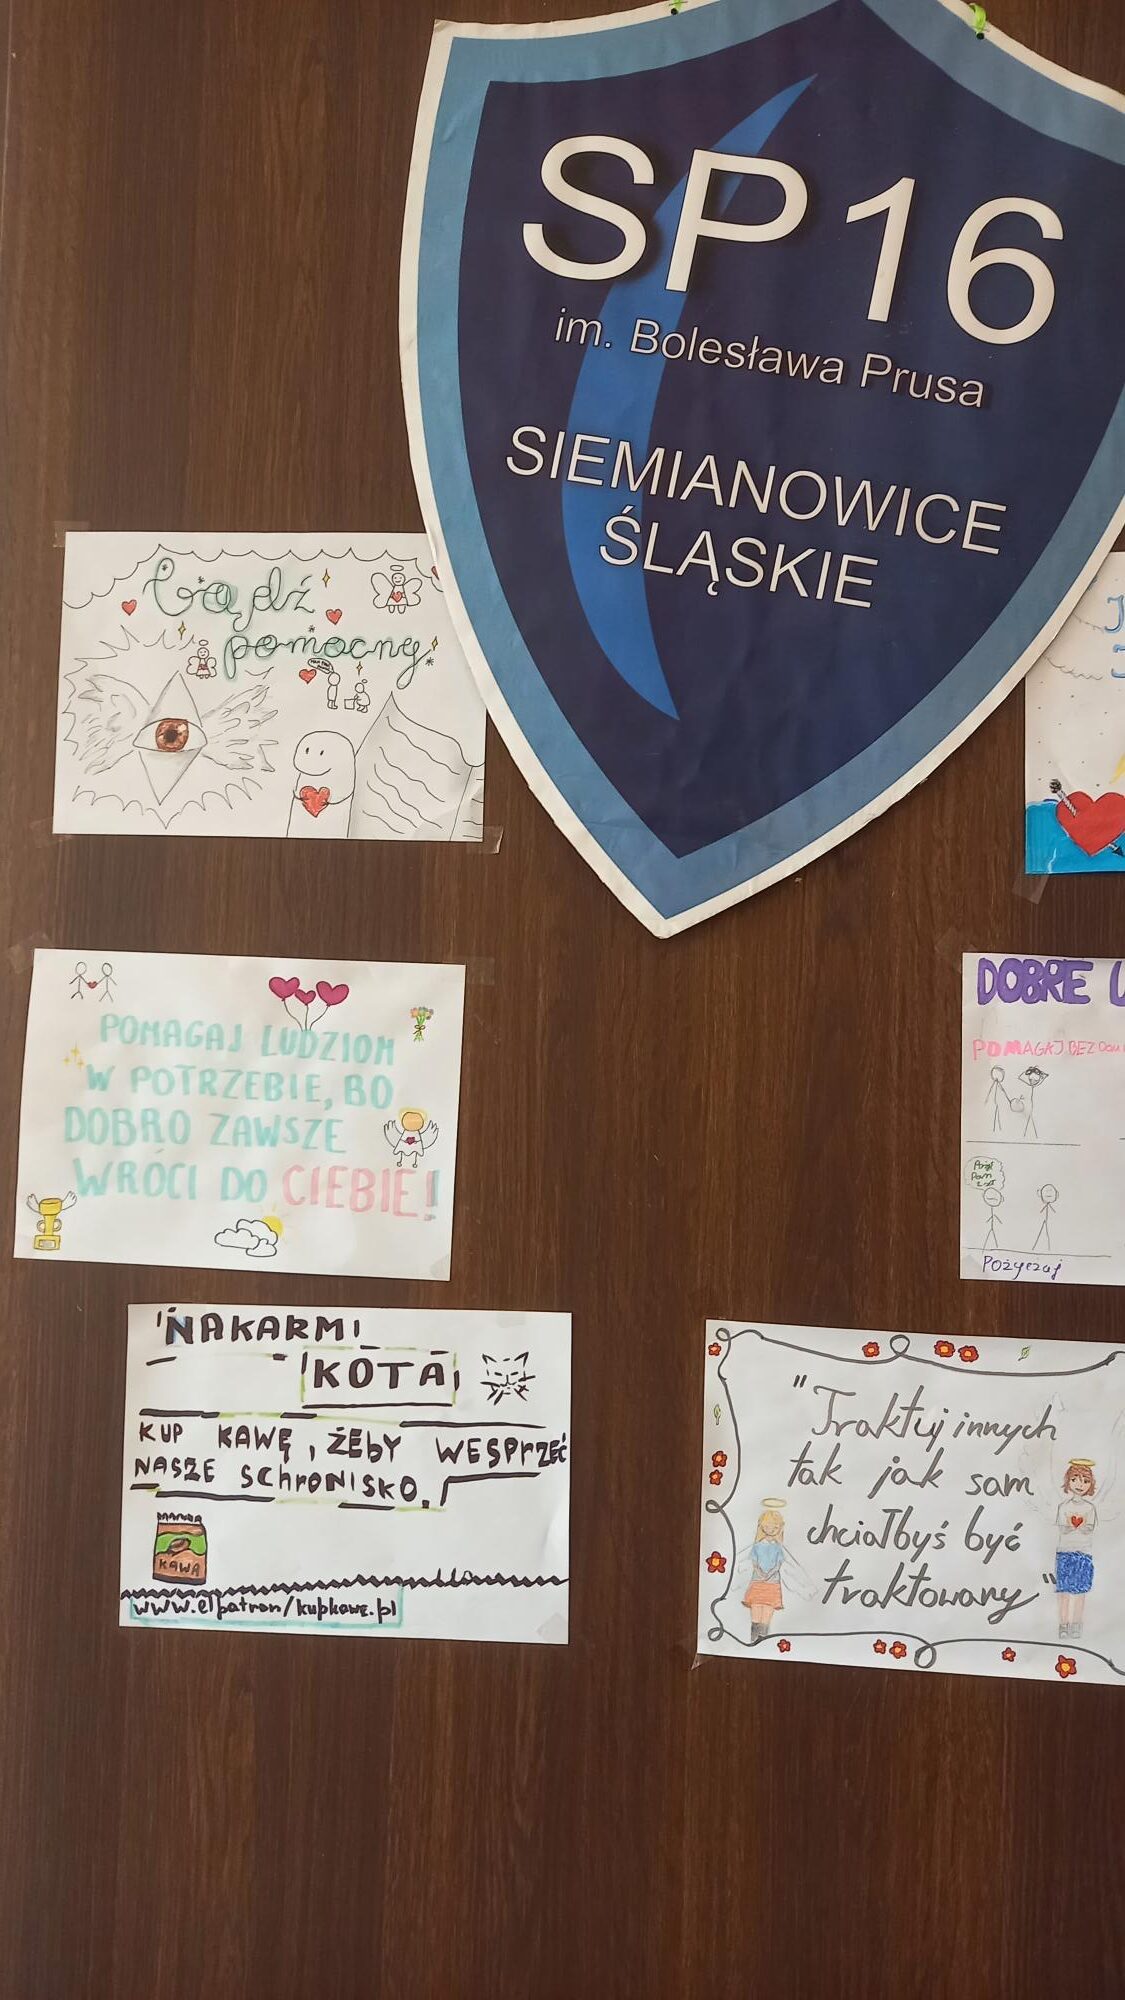 SP16
im. Bolesława Prusa
SIEMIANOWICE
ŚLĄSKIE
bądź
pomocny
POMAGAJ LUDZIOM
W POTRZEBIE, BO
DOBRO ZAWSZE
WRÓCI DO CIEBIE!
DOBRE
POMAGAJ BEZ
Pożyczaj
NAKARM
KOTA
KUP KAWĘ, ŻEBY WESPRZEĆ
NASZE SCHRONISKO.
KAWA
www.elpatron/kupkawe.pl
"Traktuj innych
tak jak sam
chciałbyś być
traktowany"